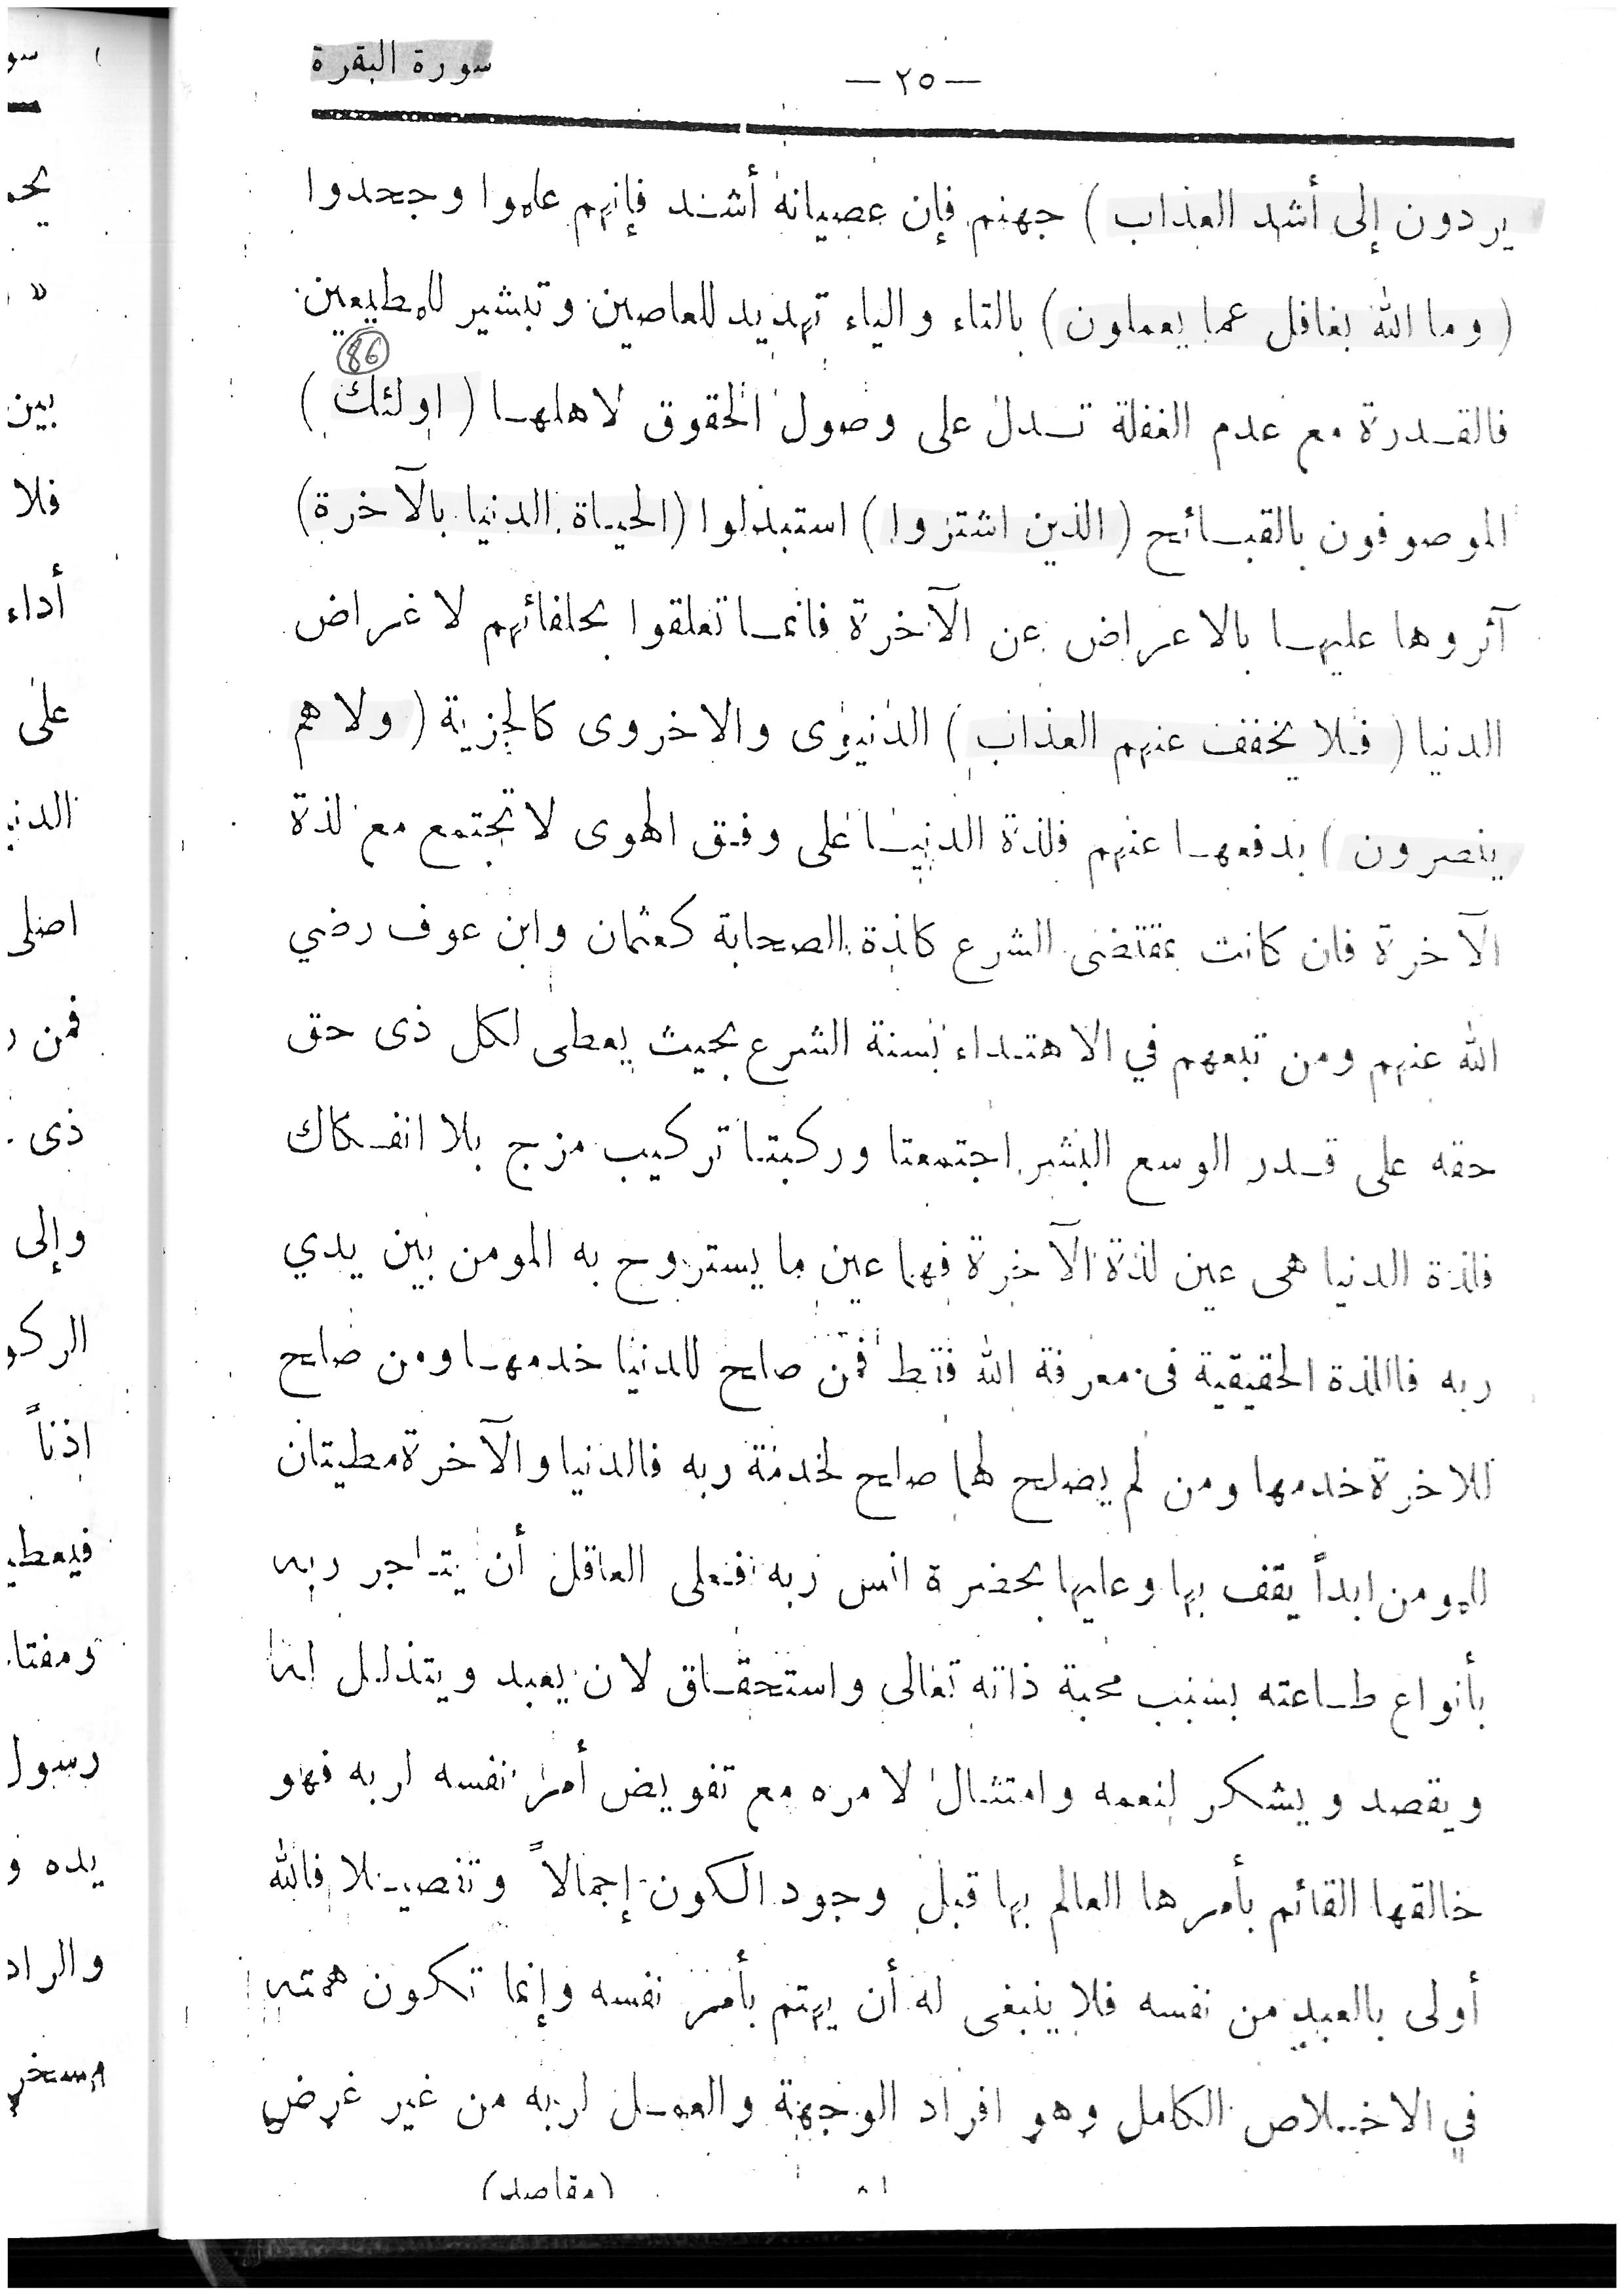 سورة البقرة
— ٢٥ —
يردون إلى أشد العذاب ) جهنم فإن عصيانه أشد فإنهم علموا وجحدوا
( وما الله بغافل عما يعملون ) بالتاء والياء تهديد للعاصين وتبشير للمطيعين
86
فالقدرة مع عدم الغفلة تدل على وصول الحقوق لاهلها ( اولئك )
الموصوفون بالقبائح ( الذين اشتروا ) استبدلوا ( الحياة الدنيا بالآخرة )
آثروها عليها بالاعراض عن الآخرة فانما تعلقوا بحلفائهم لاغراض
الدنيا ( فلا يخفف عنهم العذاب ) الدنيوى والاخروى كالجزية ( ولا هم
ينصرون ) بدفعها عنهم فلذة الدنيا على وفق الهوى لا تجتمع مع لذة
الآخرة فان كانت بمقتضى الشرع كلذة الصحابة كعثمان وابن عوف رضي
الله عنهم ومن تبعهم في الاهتداء بسنة الشرع بحيث يعطى لكل ذى حق
حقه على قدر الوسع البشر اجتمعتا وركبتا تركيب مزج بلا انفكاك
فلذة الدنيا هى عين لذة الآخرة فهما عين ما يستروح به المومن بين يدي
ربه فاللذة الحقيقية فى معرفة الله فقط فمن صلح للدنيا خدمها ومن صلح
للاخرة خدمها ومن لم يصلح لهما صلح لخدمة ربه فالدنيا والآخرة مطيتان
للمومن ابداً يقف بها وعليها بحضرة انس ربه فعلى العاقل أن يتاجر ربه
بأنواع طاعته بسبب محبة ذاته تعالى واستحقاق لان يعبد ويتذلل له
ويقصد ويشكر لنعمه وامتثال لامره مع تفويض أمر نفسه لربه فهو
خالقها القائم بأمرها العالم بها قبل وجود الكون إجمالاً وتفصيلا فالله
أولى بالعبد من نفسه فلا ينبغى له أن يهتم بأمر نفسه وإنما تكون همته
في الاخلاص الكامل وهو افراد الوجهة والعمل لربه من غير غرض
(مقاصد)
سو
يحـ
بين
فلا
أداء
على
الدنيـ
اصلى
فمن
ذى
وإلى
الركو
اذناً
فيعطيـ
ومفتا
رسول
يده و
والراد